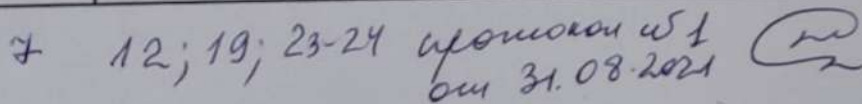 7 12; 19; 23-24 протокол №1
от 31.08.2021